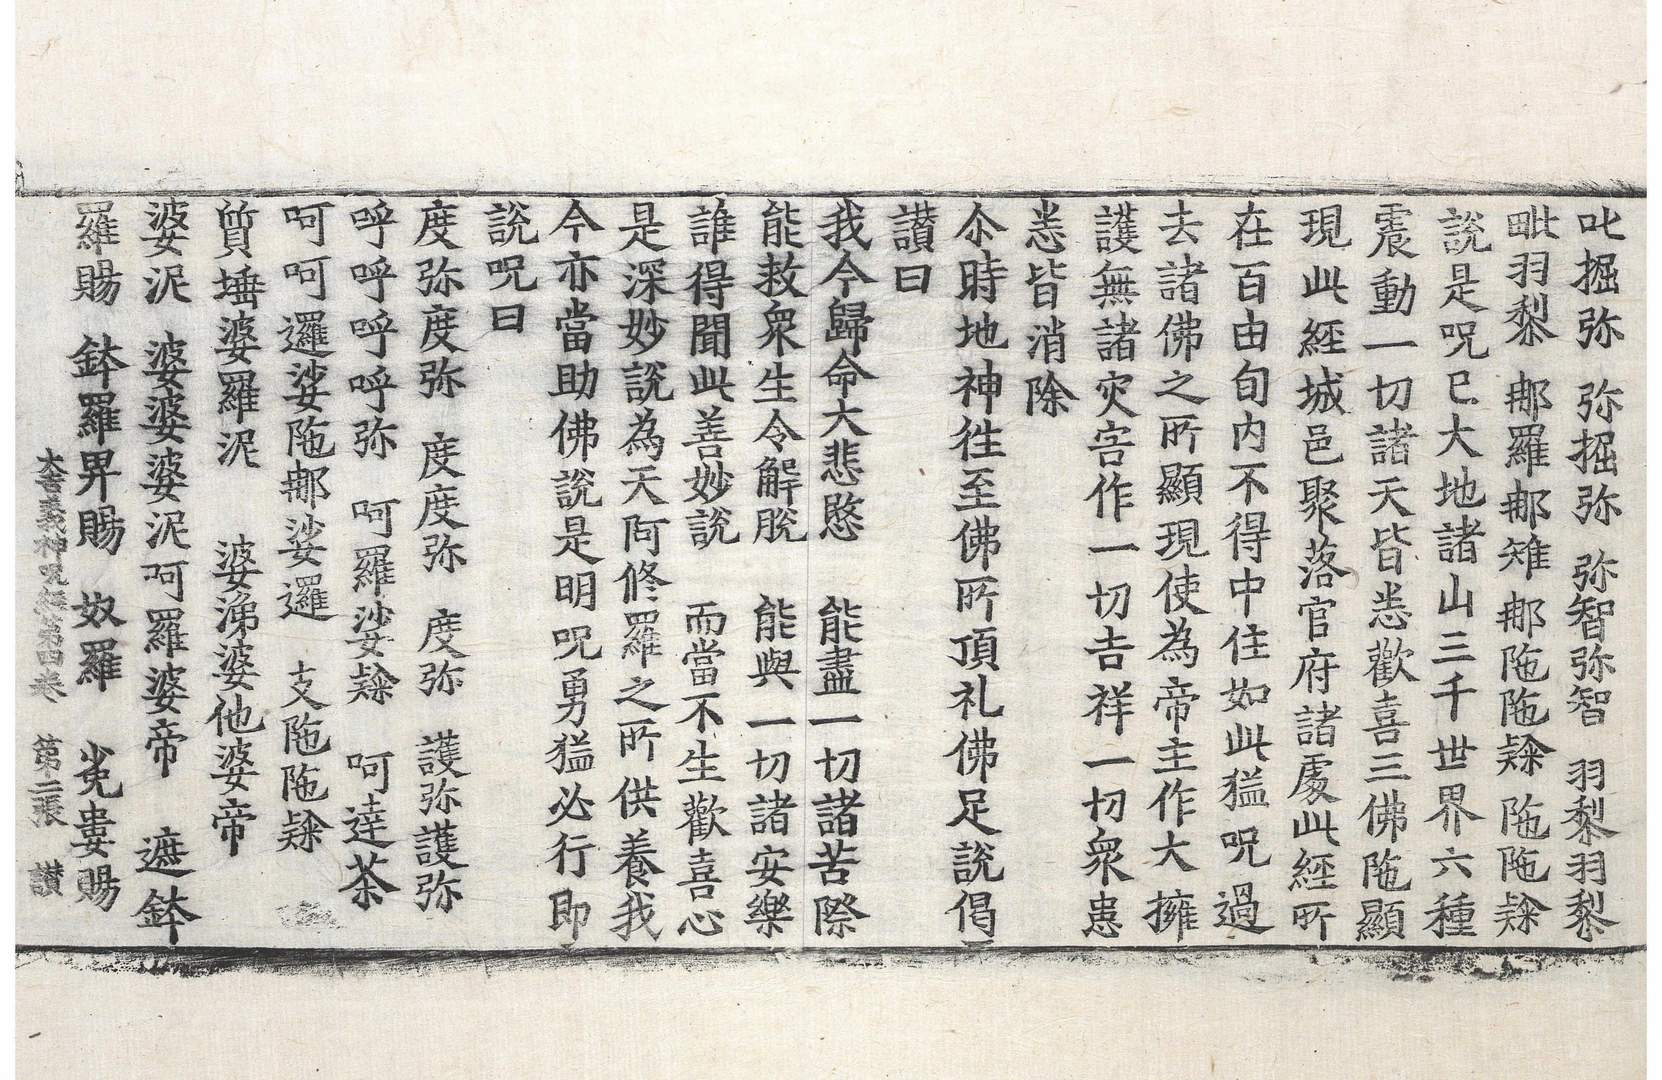 叱掘弥 弥掘弥 弥智弥智 羽梨羽梨
毗羽黎 郍羅郍雉 郍陁陁䟂 陁陁䟂
說是呪已大地諸山三千世界六種
震動一切諸天皆悉歡喜三佛陁顯
現此經城邑聚落官府諸處此經所
在百由旬內不得中住如此猛呪過
去諸佛之所顯現使為帝主作大擁
護無諸灾害作一切吉祥一切衆患
悉皆消除
尒時地神徃至佛所頂礼佛足說偈
讃曰
我今歸命大悲愍 能盡一切諸苦際
能救衆生令解脫 能與一切諸安樂
誰得聞此善妙說 而當不生歡喜心
是深妙說為天阿修羅之所供養我
今亦當助佛說是明呪勇猛必行即
說呪曰
度弥度弥 度度弥 度弥 護弥護弥
呼呼呼呼弥 呵羅娑䟂 呵達荼
呵呵邏娑陁郍娑邏 支陁陁䟂
質埵婆羅泥 婆渧婆他婆帝
婆泥 婆婆婆泥呵羅婆帝 遮鉢
羅賜 鉢羅畀賜 奴羅 㝹婁賜
大吉義神呪經第四卷 第二張 讃